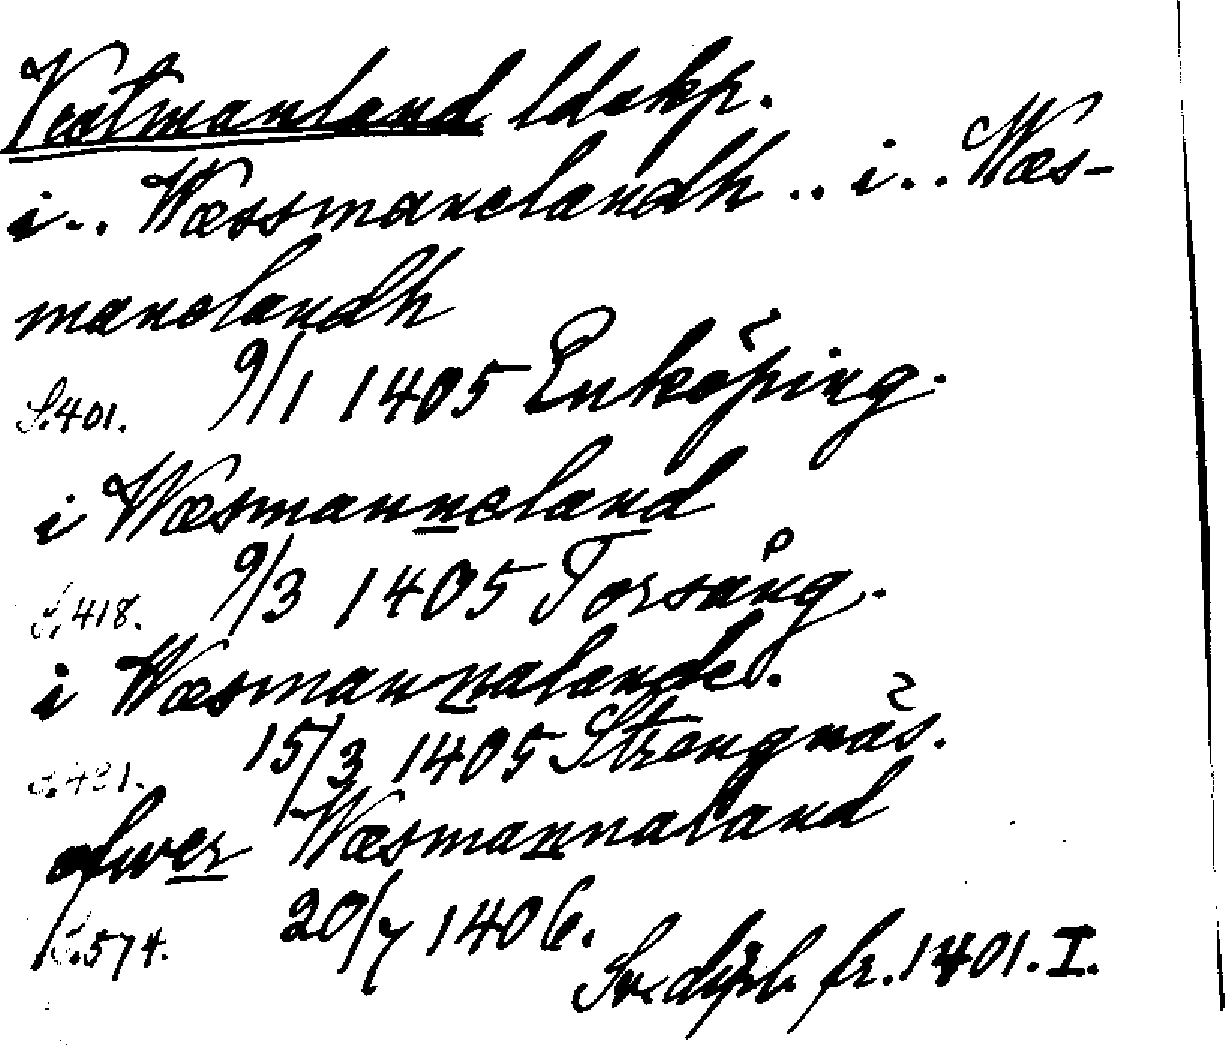 Vestmanland ldskp.
i .. Wæssmanelandh .. i .. Wæs-
manelandh
S. 401. 9/1 1405 Enköping.
i Wæsmanneland
S. 418. 9/3 1405 Torsång.
i Wæsmannalande.
S. 421. 15/3 1405 Strengnäs.
ofwer Wæsmannaland
S. 574. 20/7 1406.
Sv. dipl. fr. 1401. I.